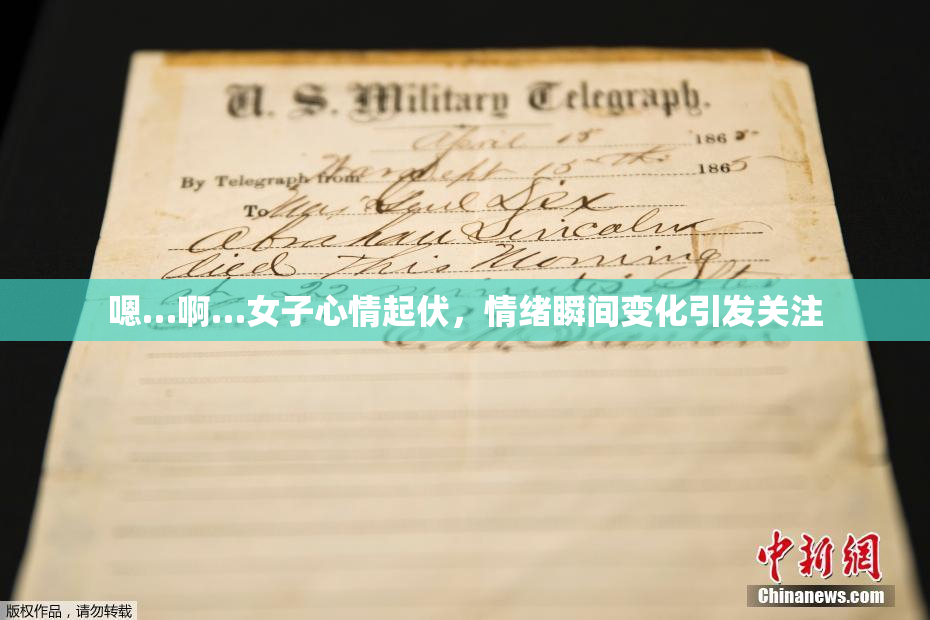 U. S. Military Telegraph.
April 15 1865
By Telegraph from War Dept 15th 1865
To Maj Genl Dix
Abraham Lincoln
died This Morning
at 22 minutes after
嗯...啊...女子心情起伏，情绪瞬间变化引发关注
中新网
Chinanews.com
版权作品，请勿转载